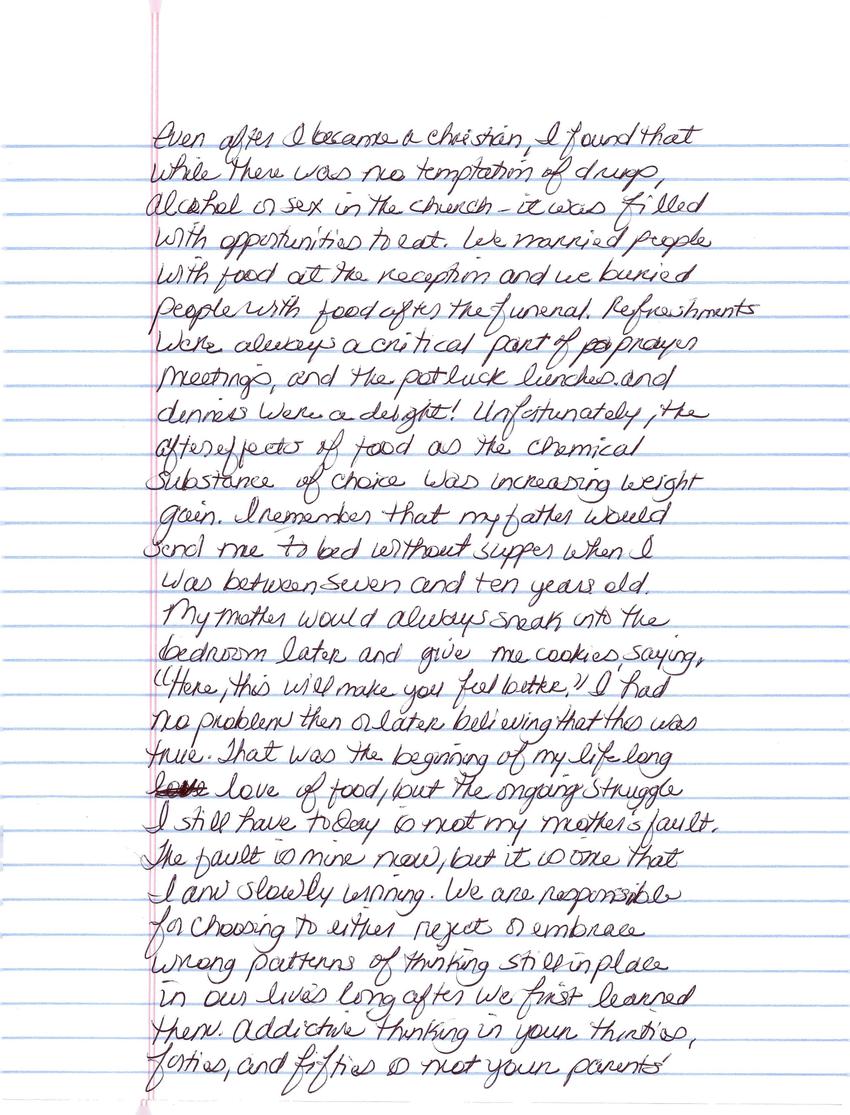 Even after I became a christian, I found that
while there was no temptation of drugs,
alcohol or sex in the church - it was filled
with opportunities to eat. We married people
with food at the reception and we buried
people with food after the funeral. Refreshments
were always a critical part of prayer
meetings, and the potluck lunches and
dinners were a delight! Unfortunately, the
aftereffects of food as the chemical
substance of choice was increasing weight
gain. I remember that my father would
send me to bed without supper when I
was between seven and ten years old.
My mother would always sneak into the
bedroom later and give me cookies, saying,
"Here, this will make you feel better." I had
no problem then or later believing that this was
true. That was the beginning of my life long
love of food, but the ongoing struggle
I still have today is not my mother's fault.
The fault is mine now, but it is one that
I am slowly winning. We are responsible
for choosing to either reject or embrace
wrong patterns of thinking still in place
in our lives long after we first learned
them. Addictive thinking in your thirties,
forties, and fifties is not your parents'